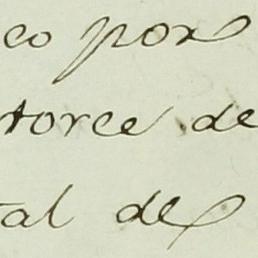 co por
torce de
tal de